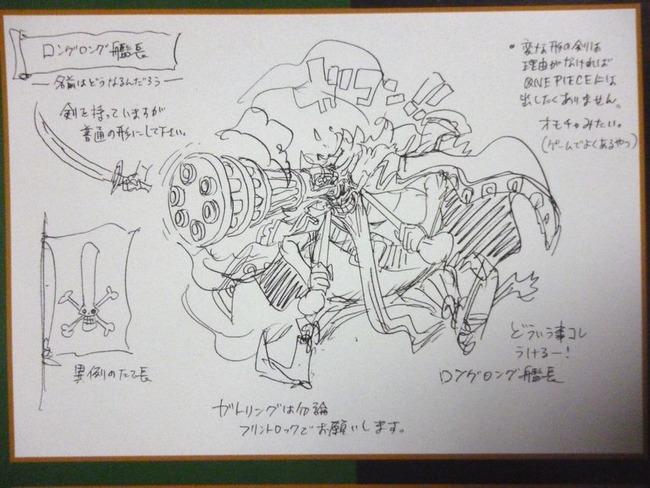 ロングロング艦長
名前はどうなるんだろう
剣を持っていますが
普通の形にして下さい。
異例のたて長
ドドドン!!
・変な形の剣は
理由がなければ
ONE PIECEには
出したくありません。
オモチャみたい。
(ゲームでよくあるやつ)
どういう事コレ
うけるー!
ロングロング艦長
ガトリングは勿論
フリントロックでお願いします。